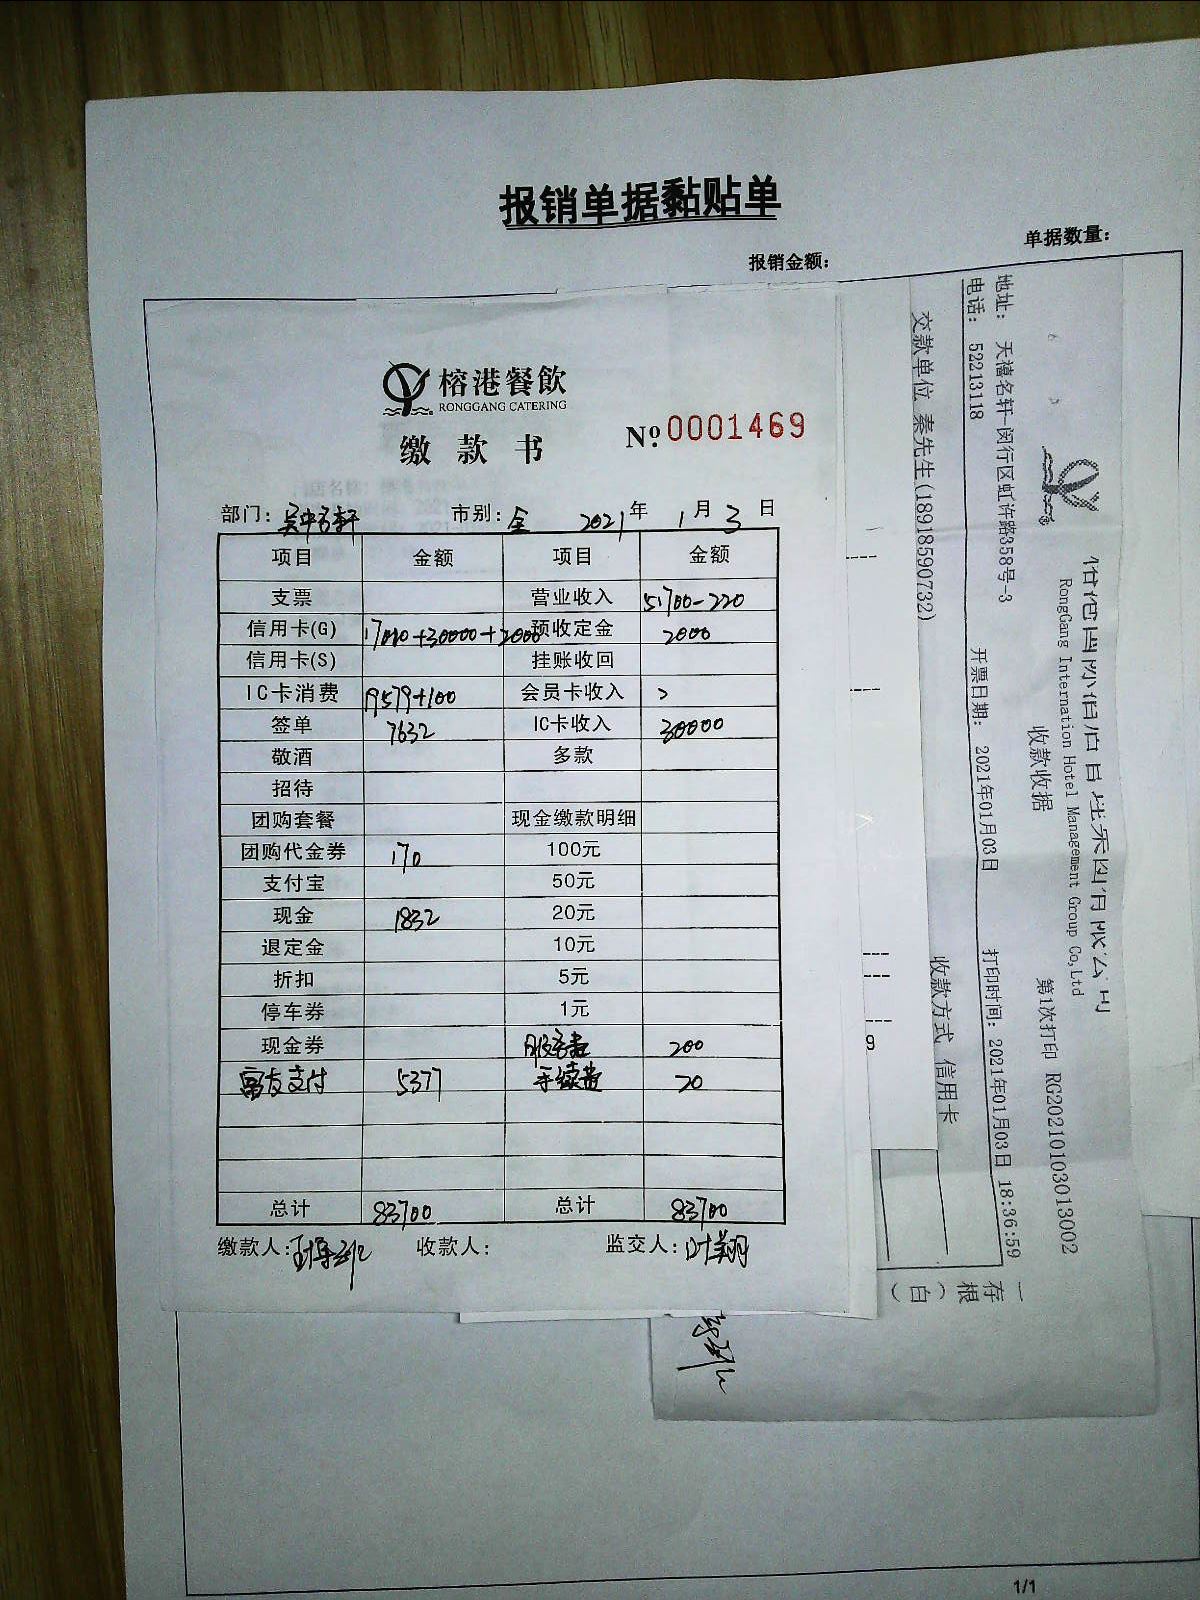 报销单据黏贴单
单据数量：
报销金额：
榕港餐飲
RONGGANG CATERING
缴款书
№ 0001469
部门： 市别：全 2021年 1月 3日
项目 金额 项目 金额
支票 营业收入 51700-220
信用卡(G) 17010+30000+2000 预收定金 2000
信用卡(S) 挂账收回
IC卡消费 19579+100 会员卡收入
签单 7632 IC卡收入 30000
敬酒 多款
招待
团购套餐 现金缴款明细
团购代金券 170 100元
支付宝 50元
现金 1832 20元
退定金 10元
折扣 5元
停车券 1元
现金券 服务费 200
富友支付 5377 手续费 20
总计 83700 总计 83700
缴款人： 收款人： 监交人：叶翔
RongGang International Hotel Management Group Co,Ltd
收款收据 第1次打印 RG20210103013002
地址： 天禧名轩-闵行区虹许路358号-3
电话： 52213118 开票日期： 2021年01月03日 打印时间：2021年01月03日 18:36:59
交款单位 秦先生(18918590732) 收款方式 信用卡
一存根(白)
9
1/1